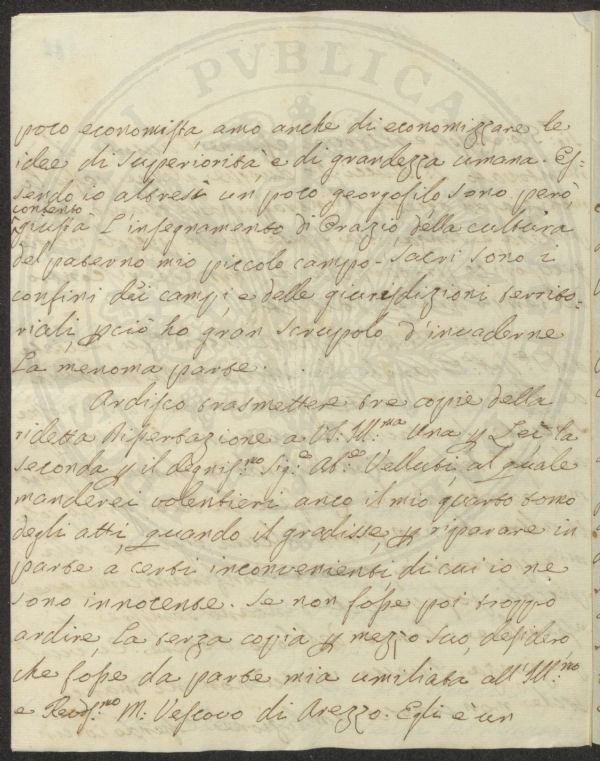 PVBLICA
poco economista, amo anche di economizzare le
idee di superiorità e di grandezza umana. Es-
sendo io altresì un poco georgofilo sono però
contento
giusta l'insegnamento di Orazio della cultura
del paterno mio piccolo campo. Sacri sono i
confini dei campi, e delle giurisdizioni territo-
riali, pciò ho gran scrupolo d'invaderne
la menoma parte.
Ardisco trasmettere tre copie della
ridetta Dissertazione a VS. Ill.ma Una p Lei la
seconda p il degnis.mo Sig.e Ab.e Velluti, al quale
manderei volentieri anco il mio quarto tomo
degli atti, quando il gradisse, p riparare in
parte a certi inconvenienti, di cui io ne
sono innocente. Se non fosse poi troppo
ardire, la terza copia p mezzo suo, desidero
che fosse da parte mia umiliata all'Ill.mo
e Revds.mo M: Vescovo di Arezzo. Egli è un